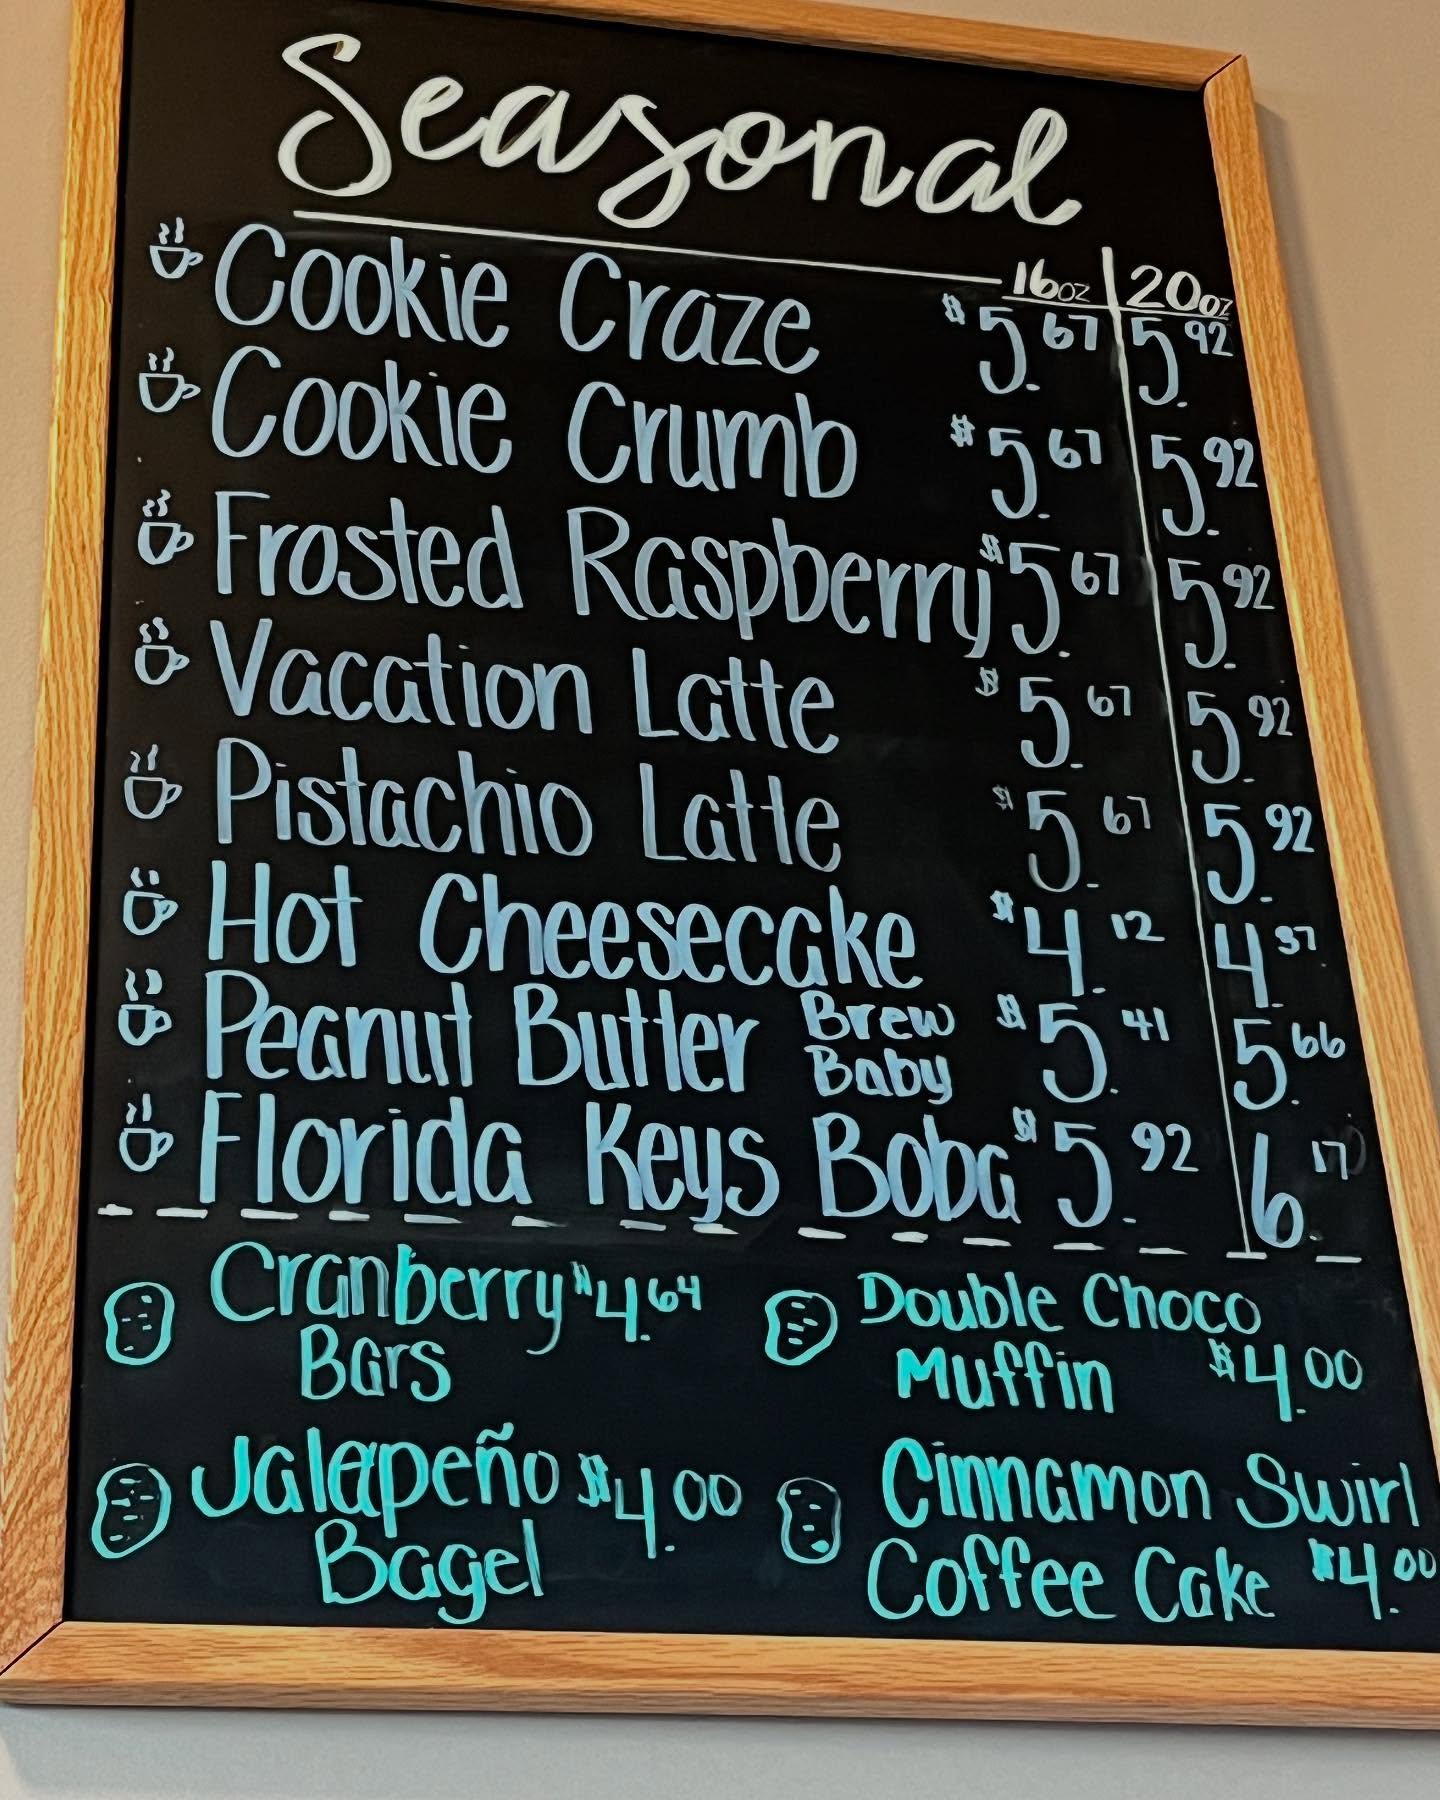 Seasonal
16oz 20oz
Cookie Craze $5.67 5.92
Cookie Crumb $5.67 5.92
Frosted Raspberry $5.67 5.92
Vacation Latte $5.67 5.92
Pistachio Latte $5.67 5.92
Hot Cheesecake $4.12 4.37
Peanut Butter Brew Baby $5.41 5.66
Florida Keys Boba $5.92 6.17
Cranberry $4.64
Bars
Double Choco
Muffin $4.00
Jalapeño $4.00
Bagel
Cinnamon Swirl
Coffee Cake $4.00